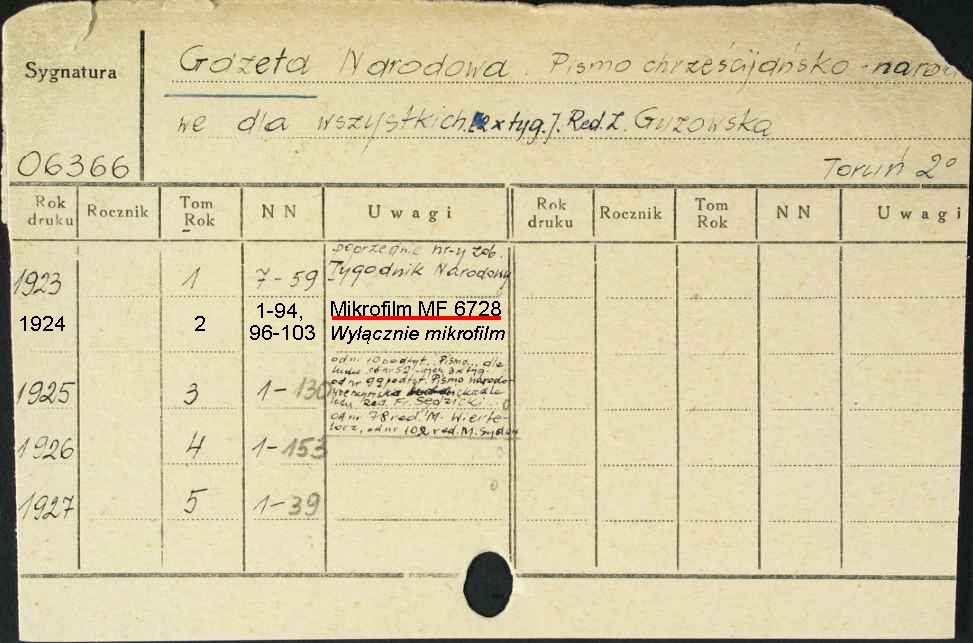 Sygnatura
Gazeta Narodowa. Pismo chrześcijańsko-narodo
we dla wszystkich. [2 x tyg.]. Red. Z. Guzowska
06366
Toruń 2°
Rok druku Rocznik Tom Rok NN Uwagi Rok druku Rocznik Tom Rok NN Uwagi
poprzednie nr-y zob.
1923 1 7-59 Tygodnik Narodowy
1924 2 1-94, 96-103 Mikrofilm MF 6728
Wyłącznie mikrofilm
od nr. 10 podtyt. Pismo... dla
ludu od nr 52 3 x tyg.
1925 3 1-130 od nr 99 podtyt. Pismo narodo
ludu Red. Fr. Sędzicki.
od nr 78 red. M. Wierte-
lorz, od nr 102 red. M. Sydow
1926 4 1-153
1927 5 1-39